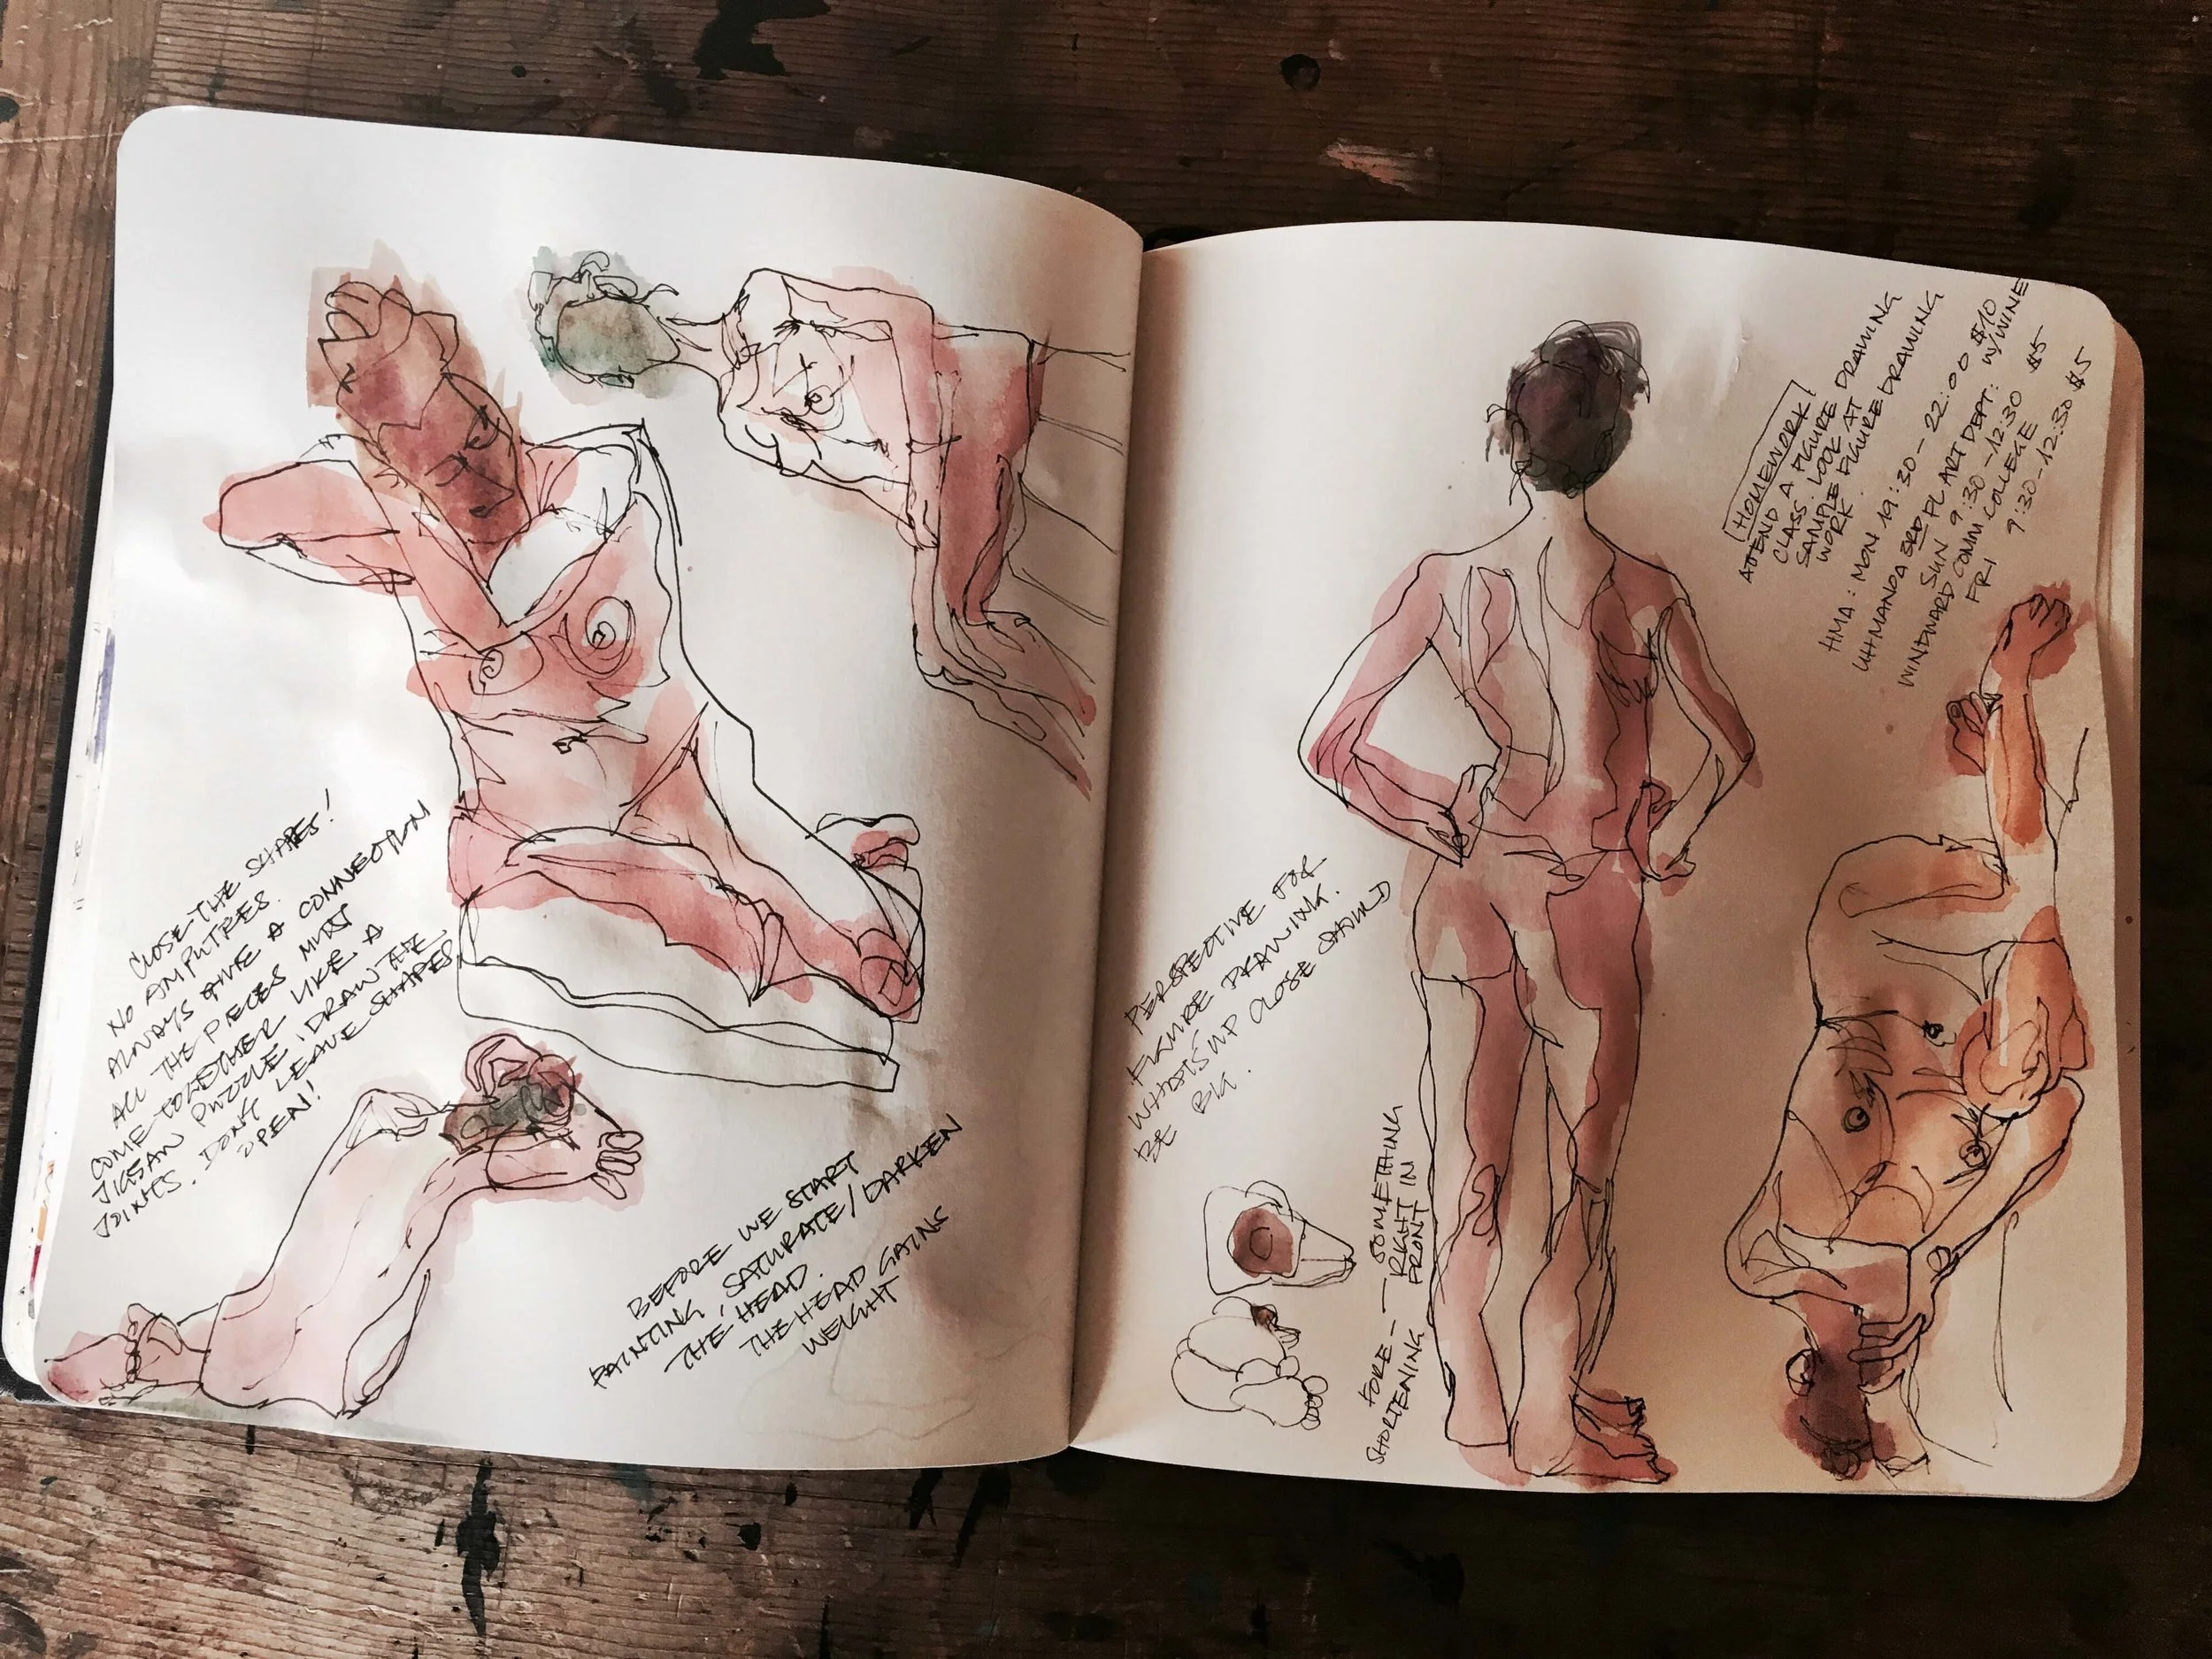 CLOSE THE SHAPES!
NO AMPUTEES.
ALWAYS HAVE A CONNECTION
ALL THE PIECES MUST
COME TOGETHER LIKE A
JIGSAW PUZZLE, DRAW THE
JOINTS. DON'T LEAVE SHAPES
OPEN!
BEFORE WE START
PAINTING, SATURATE/DARKEN
THE HEAD.
THE HEAD GAINS
WEIGHT
PERSPECTIVE FOR
FIGURE DRAWING.
WHAT'S UP CLOSE SHOULD
BE BIG.
FORE- — SOMETHING
SHORTENING RIGHT IN
FRONT
HOMEWORK!
ATTEND A FIGURE DRAWING
CLASS. LOOK AT
SAMPLE FIGURE DRAWING
WORK.
HMA: MON 19:30-22:00 $10
UHMANOA 3RD FL ART DEPT: W/WINE
SUN 9:30-12:30 $5
WINDWARD COMM COLLEGE
FRI 9:30-12:30 $5